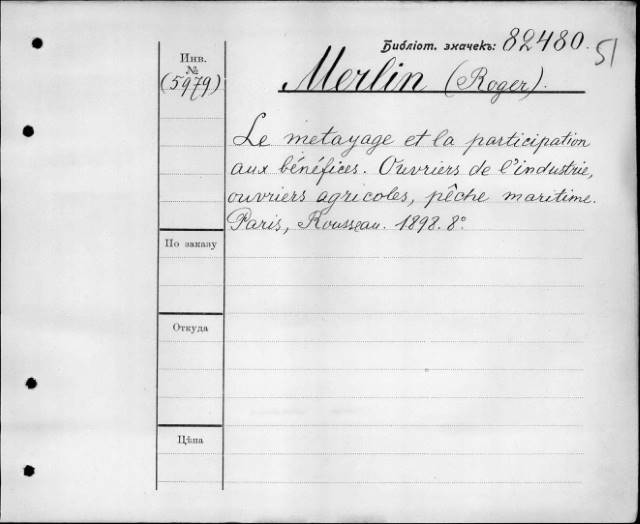 Библіот. значекъ: 82480. 51
Инв.
№
(5979)
Merlin (Roger).
Le metayage et la participation
aux bénéfices. Ouvriers de l'industrie,
ouvriers agricoles, pêche maritime.
Paris, Rousseau. 1898. 8º.
По заказу
Откуда
Цѣна